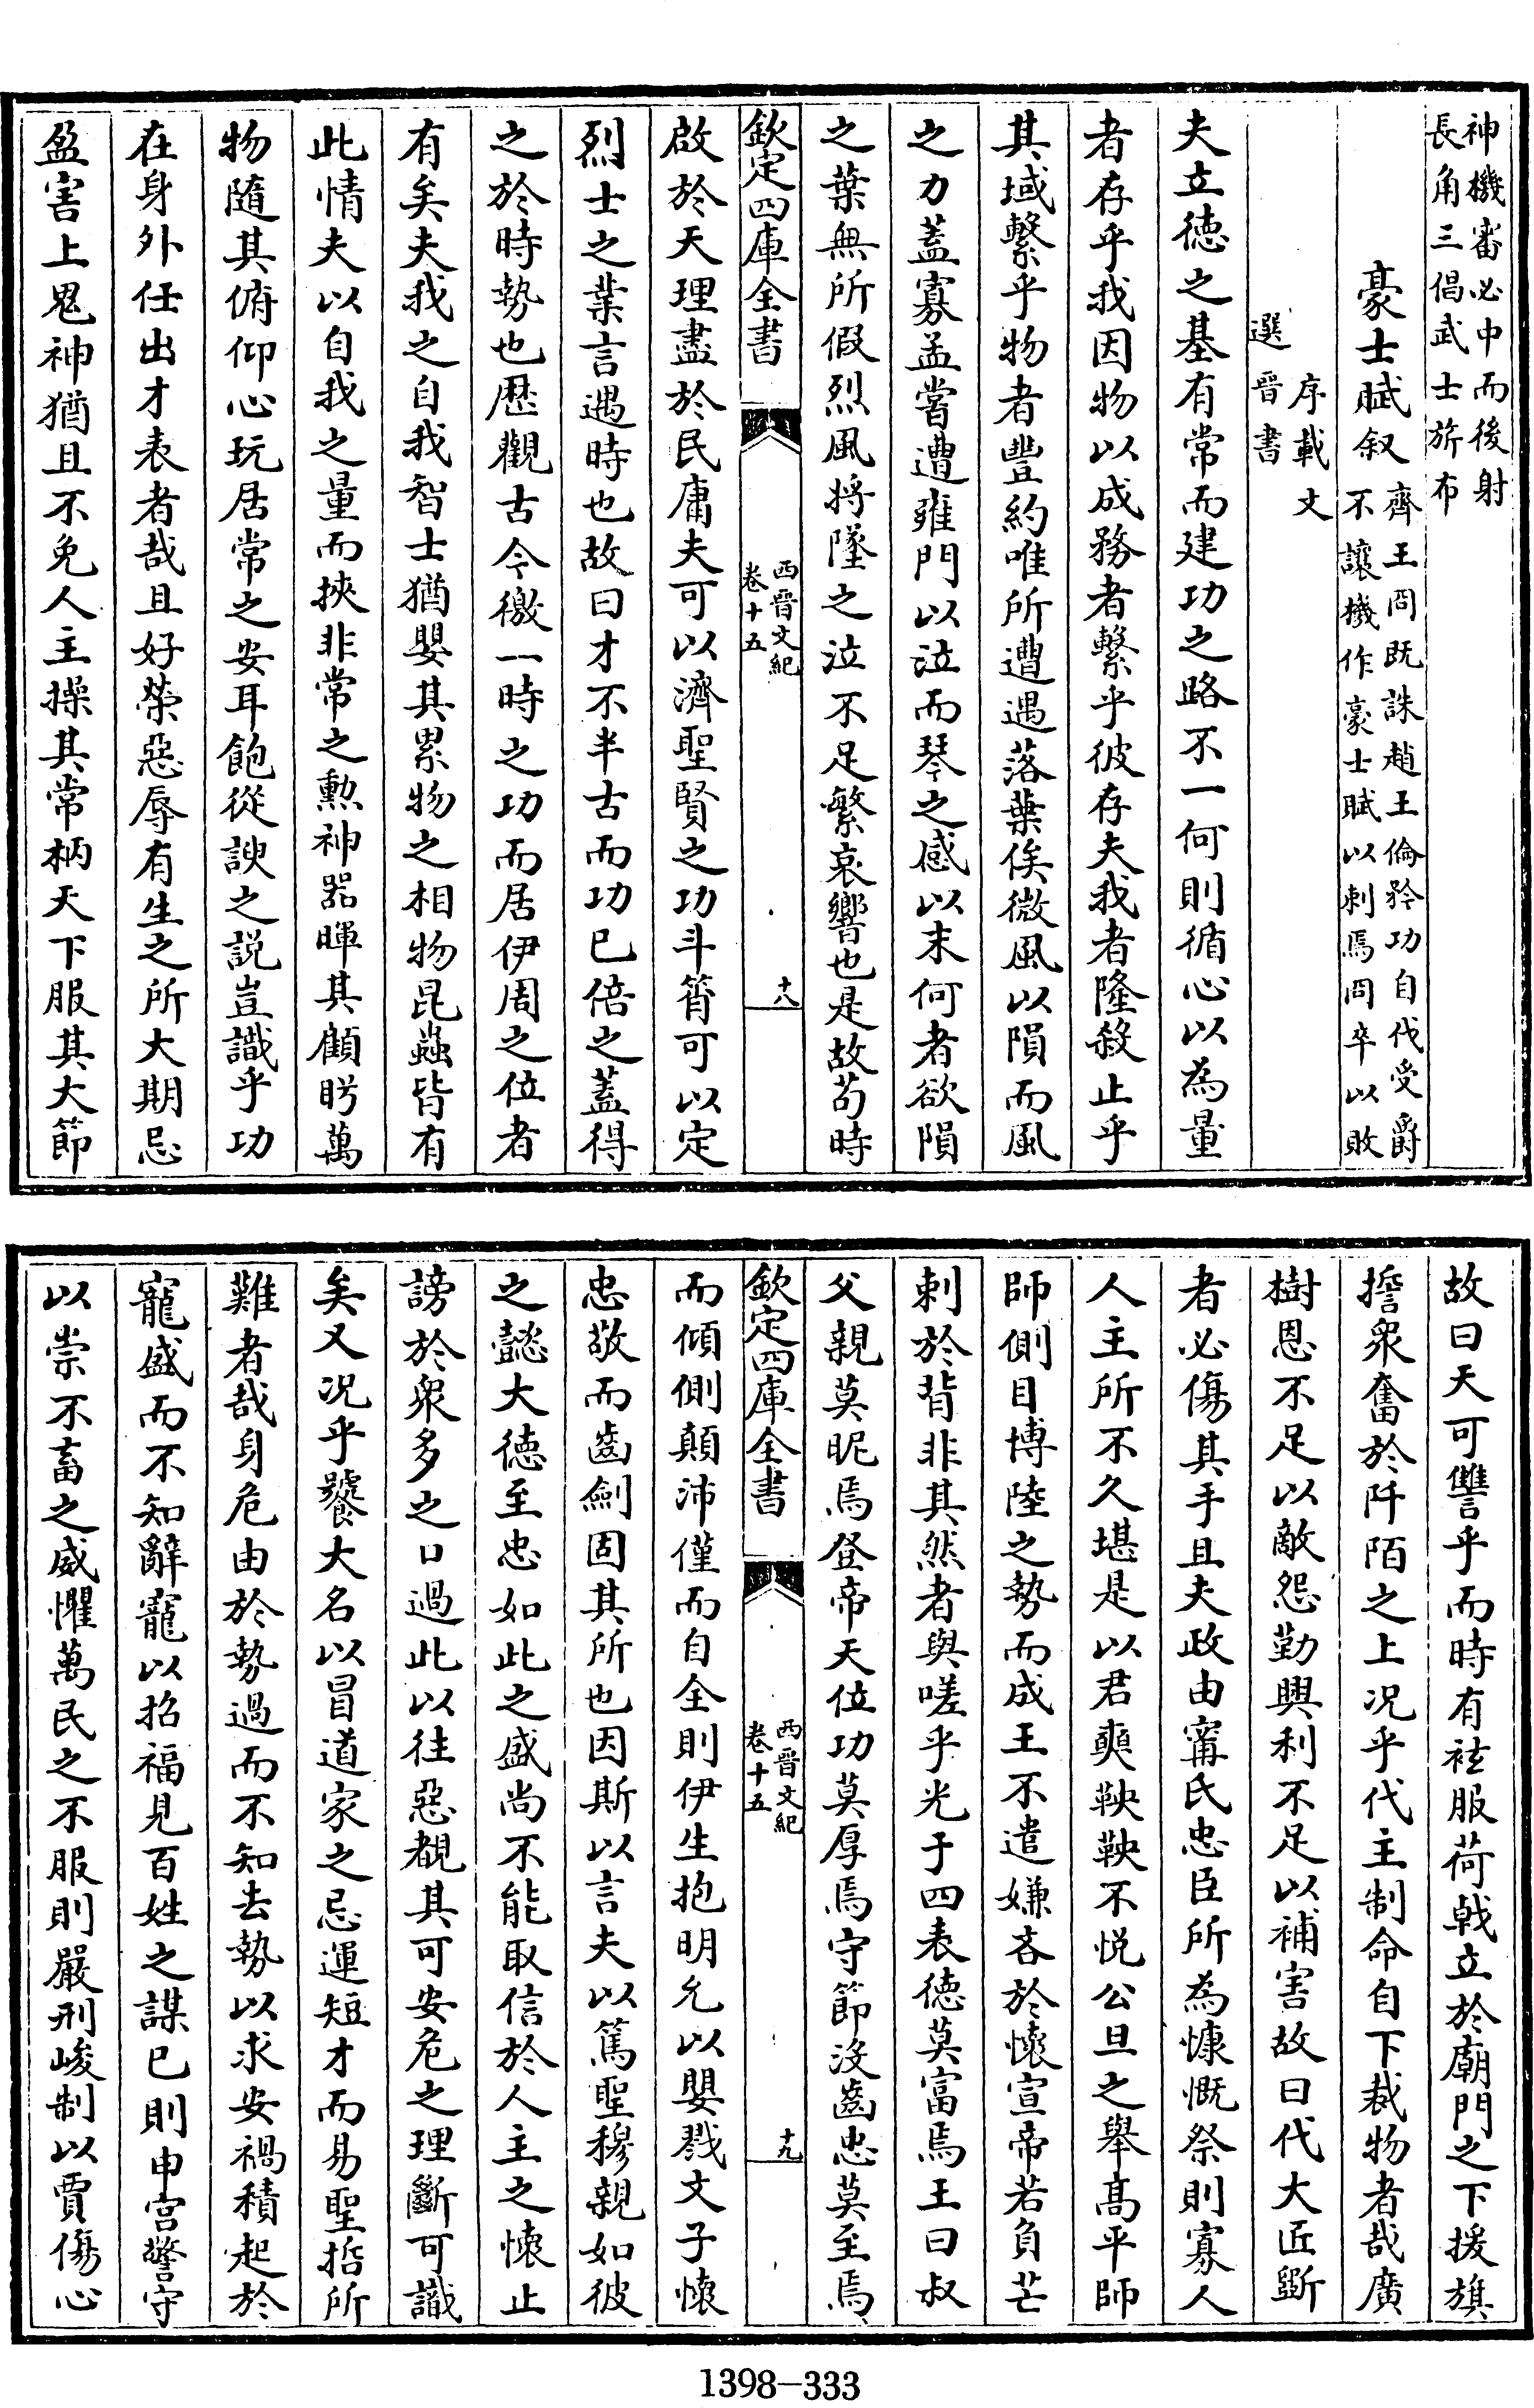 神機審必中而後射
長角三倡武士旂布
豪士賦叙
齊王冏既誅趙王倫矜功自伐受爵
不讓機作豪士賦以刺焉冏卒以敗
序載文
選晉書
夫立德之基有常而建功之路不一何則循心以為量
者存乎我因物以成務者繫乎彼存夫我者隆殺止乎
其域繫乎物者豐約唯所遭遇落葉俟微風以隕而風
之力蓋寡孟嘗遭雍門以泣而琴之感以末何者欲隕
之葉無所假烈風將墜之泣不足繁哀響也是故苟時
欽定四庫全書
西晉文紀
卷十五
十八
啟於天理盡於民庸夫可以濟聖賢之功斗筲可以定
烈士之業言遇時也故曰才不半古而功已倍之蓋得
之於時勢也歷觀古今徼一時之功而居伊周之位者
有矣夫我之自我智士猶嬰其累物之相物昆蟲皆有
此情夫以自我之量而挾非常之勲神器暉其顧眄萬
物隨其俯仰心玩居常之安耳飽從諛之説豈識乎功
在身外任出才表者哉且好榮惡辱有生之所大期忌
盈害上鬼神猶且不免人主操其常柄天下服其大節
故曰天可讐乎而時有袨服荷戟立於廟門之下援旗
誓衆奮於阡陌之上况乎代主制命自下裁物者哉廣
樹恩不足以敵怨勤興利不足以補害故曰代大匠斵
者必傷其手且夫政由甯氏忠臣所為慷慨祭則寡人
人主所不久堪是以君奭鞅鞅不悦公旦之舉髙平師
師側目博陸之勢而成王不遣嫌吝於懐宣帝若負芒
刺於背非其然者與嗟乎光于四表德莫富焉王曰叔
父親莫昵焉登帝天位功莫厚焉守節沒齒忠莫至焉
欽定四庫全書
西晉文紀
卷十五
十九
而傾側顛沛僅而自全則伊生抱明允以嬰戮文子懐
忠敬而齒劍固其所也因斯以言夫以篤聖穆親如彼
之懿大德至忠如此之盛尚不能取信於人主之懐止
謗於衆多之口過此以往惡覩其可安危之理斷可識
矣又况乎饕大名以冒道家之忌運短才而易聖哲所
難者哉身危由於勢過而不知去勢以求安禍積起於
寵盛而不知辭寵以招福見百姓之謀已則申宫警守
以崇不畜之威懼萬民之不服則嚴刑峻制以賈傷心
1398-333